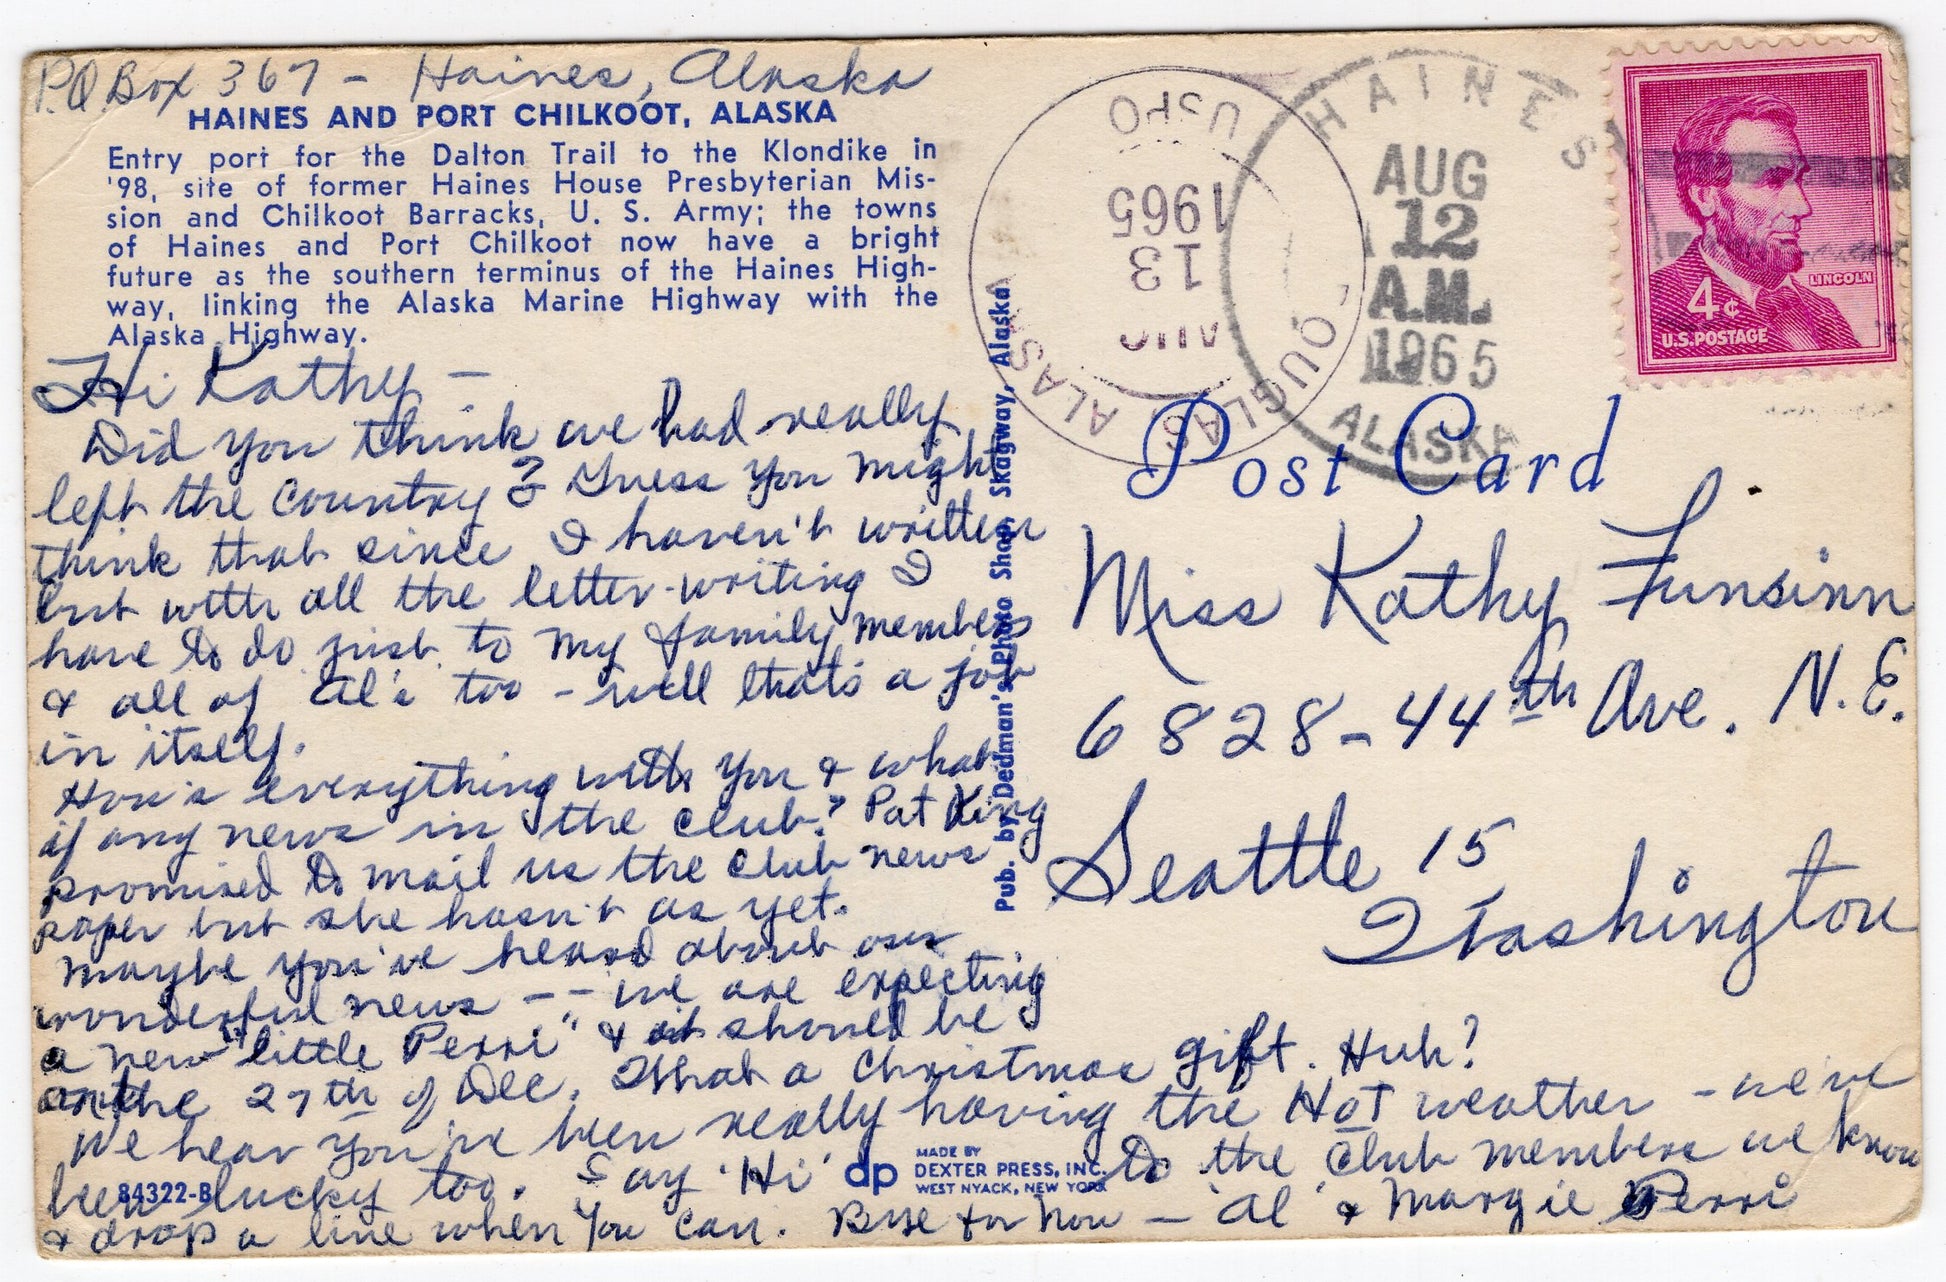 P.O. Box 367 - Haines, Alaska
HAINES AND PORT CHILKOOT, ALASKA
Entry port for the Dalton Trail to the Klondike in
'98, site of former Haines House Presbyterian Mis-
sion and Chilkoot Barracks, U. S. Army; the towns
of Haines and Port Chilkoot now have a bright
future as the southern terminus of the Haines High-
way, linking the Alaska Marine Highway with the
Alaska Highway.
Hi Kathy -
Did you think we had really
left the country? Guess you might
think that since I haven't written
but with all the letter-writing I
have to do just to my family members
& all of Al's too - well that's a job
in itself.
How's everything with you & what
if any news in the club? Pat King
promised to mail us the club news
paper but she hasn't as yet.
Maybe you've heard about our
wonderful news -- we are expecting
a new "little Perri" & it should be
on the 27th of Dec. What a Christmas gift. Huh?
We hear you've been really having the HOT weather - we've
been lucky too. Say 'Hi' to the Club members we know
& drop a line when you can. Bye for now - Al & Margie Perri
84322-B
dp
MADE BY
DEXTER PRESS, INC.
WEST NYACK, NEW YORK
Pub. by Dedman's Photo Shop, Skagway, Alaska
USPO
1965
13
AUG
DOUGLAS ALASKA
HAINES
AUG
12
A.M.
1965
ALASKA
LINCOLN
4¢
U.S. POSTAGE
Post Card
Miss Kathy Funsinn
6828-44th Ave. N.E.
Seattle 15
Washington